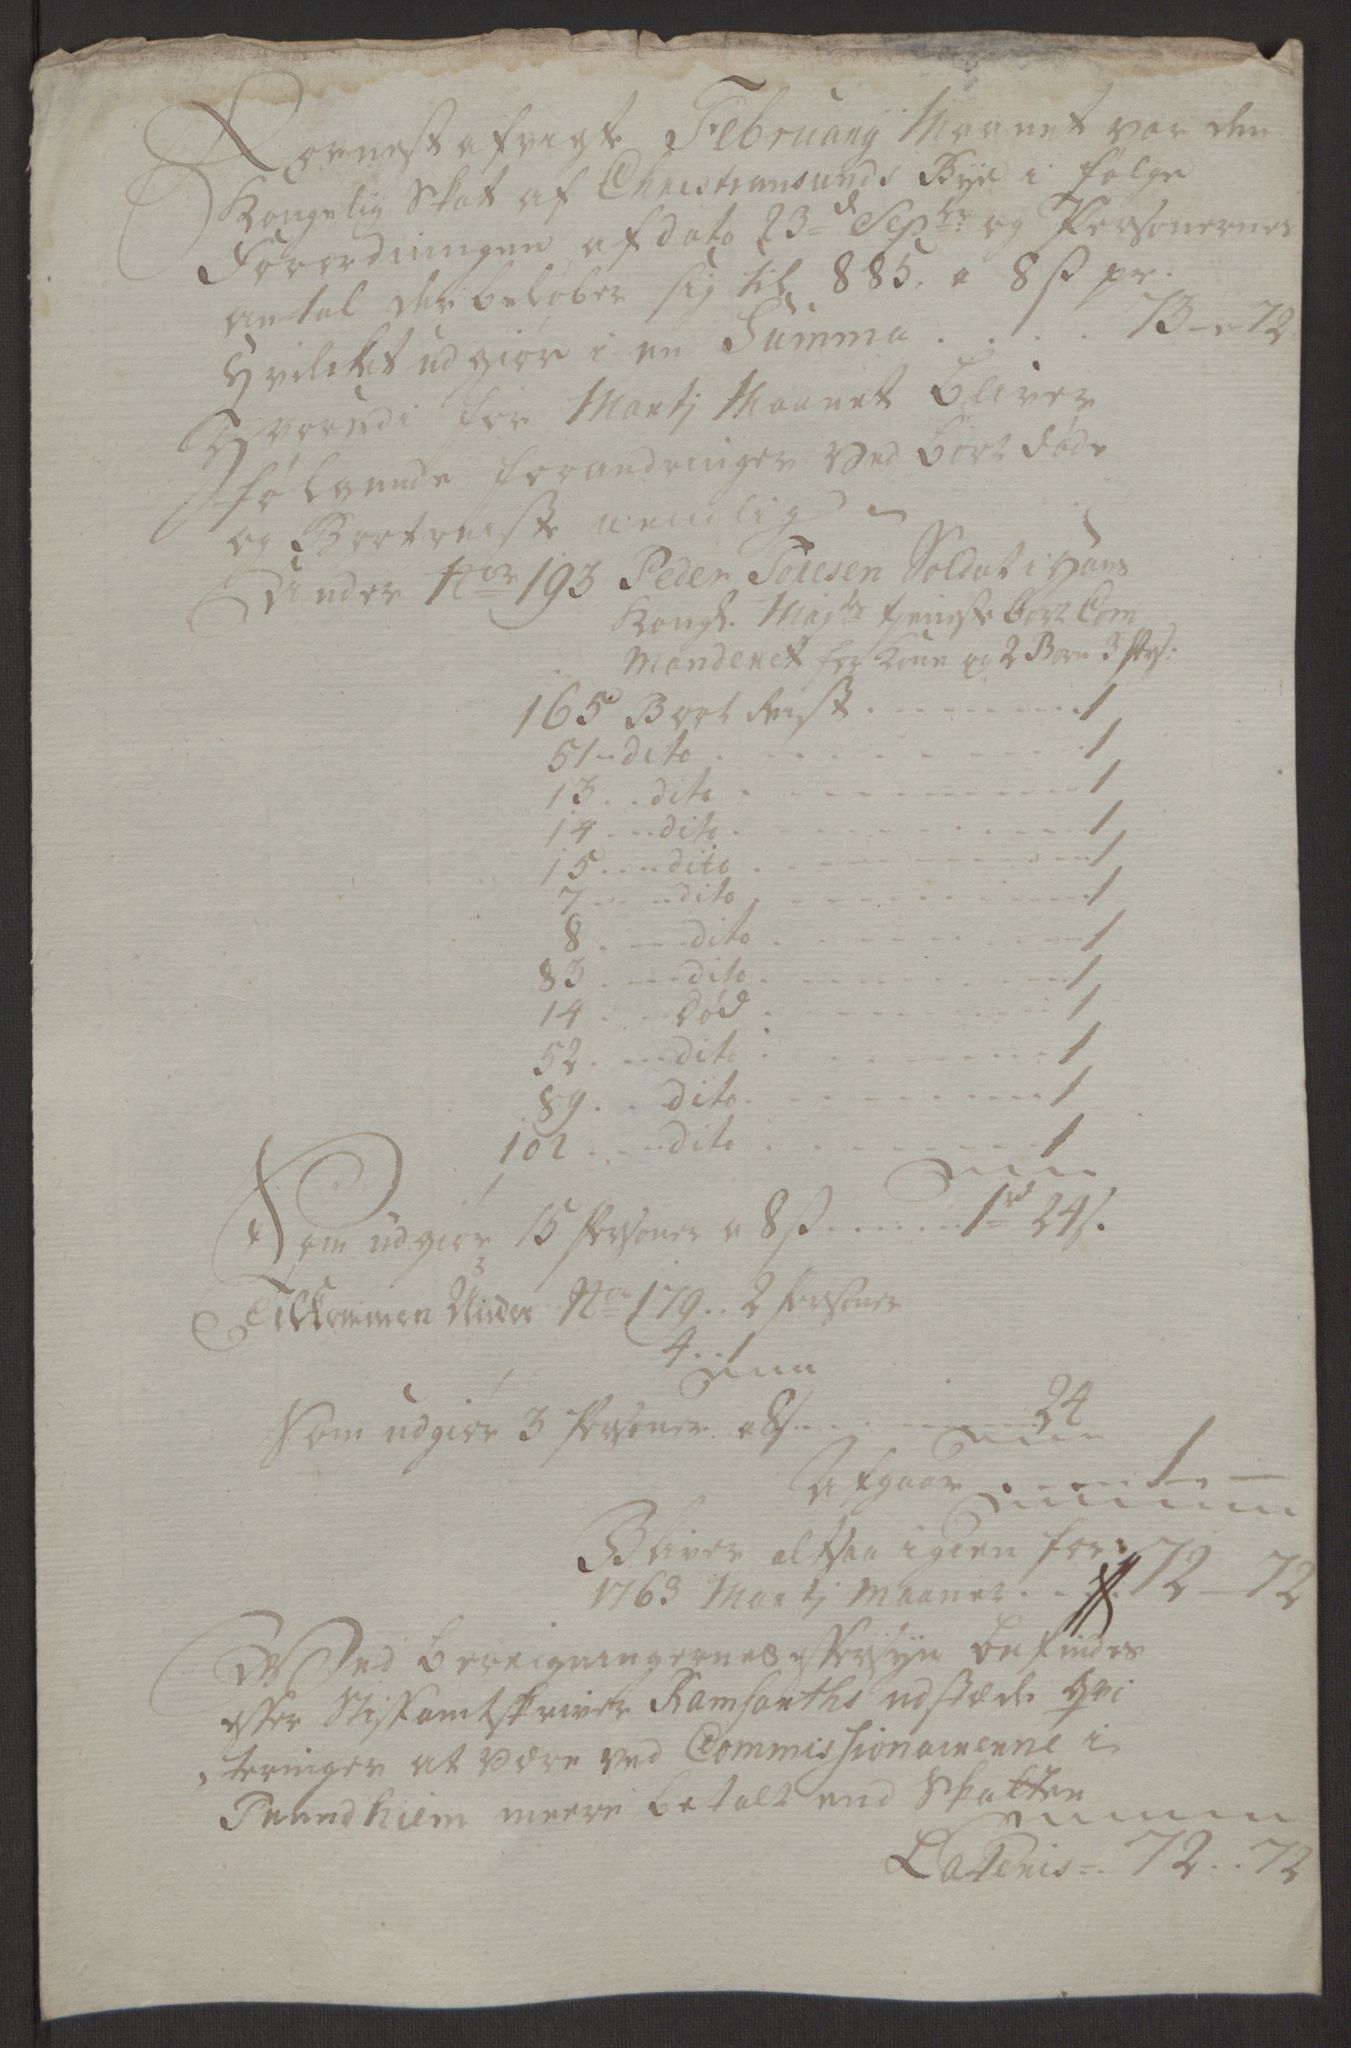 Nærnest afvigte February Maanet var den
Kongelig Skat af Christiansunds Bye i følge
Forordningen af dato 23d Sepbr: og Personernes
antal der beløber sig til 885. a 8 ß pr.
Hvilket udgiør i en Summa . . . . 73 - 72
Hvorudi for Martj Maanet bliver
følgende forandringer ved bort døde
og Bortreiste nemlig
Under Nor 193 Peder Toresen Soldat i Hans
Kongl. Maysts tjeneste bort Com
manderet for Kone og 2 Børn 3 Pers:
165 Bort Reist . . . . . . . 1
51 dito . . . . . . . 1
13 . . dito . . . . . . . 1
14 . . dito . . . . . . . 1
15 . . . dito . . . . . . . 1
7 . . . dito . . . . . . . 1
8 . . . dito . . . . . . . 1
83 . . . dito . . . . . . . 1
14 . . . død . . . . . . . 1
52 . . . dito . . . . . . . 1
89 . . dito . . . . . . . 1
102 . . . dito . . . . . . . 1
Som udgiør 15 Personer a 8 ß . . . . . . 1 rd 24 s.
Tilkommen Under Nor 179 . . 2 Personer
4 . . 1
Som udgiør 3 Personer a 8 s . . . . . . 24
Afgaar . . . . . 1 —
Bliver altsaa igien for
1763 Martj Maanet . . . 72 — 72
Ved beregningernes eftersyn befindes
efter Stiftamtskriver Ramfarths udstæde Qvi
teringer at være ved Commissionairerne i
Trundhiem meere betalt end Skatten
Lateris = . 72 . . 72